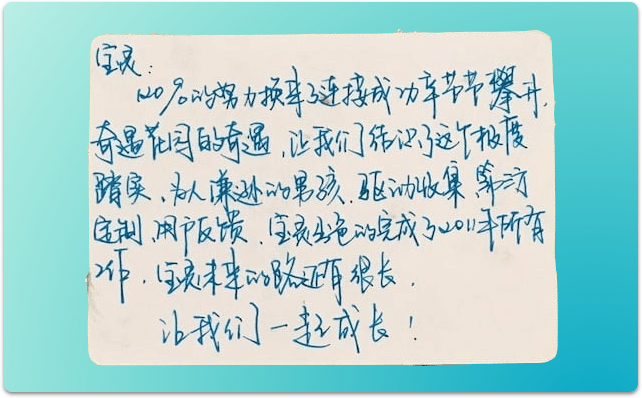 宝灵:
120%的努力换来了连接成功率节节攀升,
奇遇花园的奇遇,让我们结识了这个极度
踏实、为人谦逊的男孩,驱动收集、第三方
定制、用户反馈,宝灵出色的完成了2011年所有
工作,宝灵未来的路还有很长,
让我们一起成长!